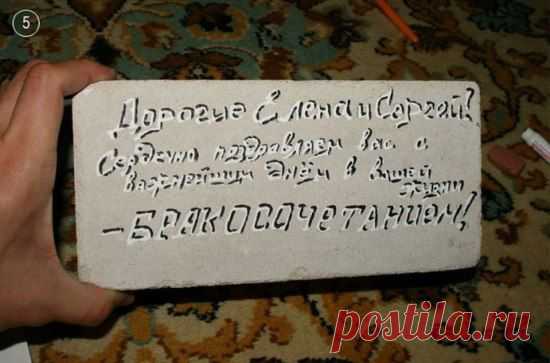 5
Дорогие Елена и Сергей!
Сердечно поздравляем вас с
важнейшим днём в вашей
жизни
– БРАКОСОЧЕТАНИЕМ!
postila.ru